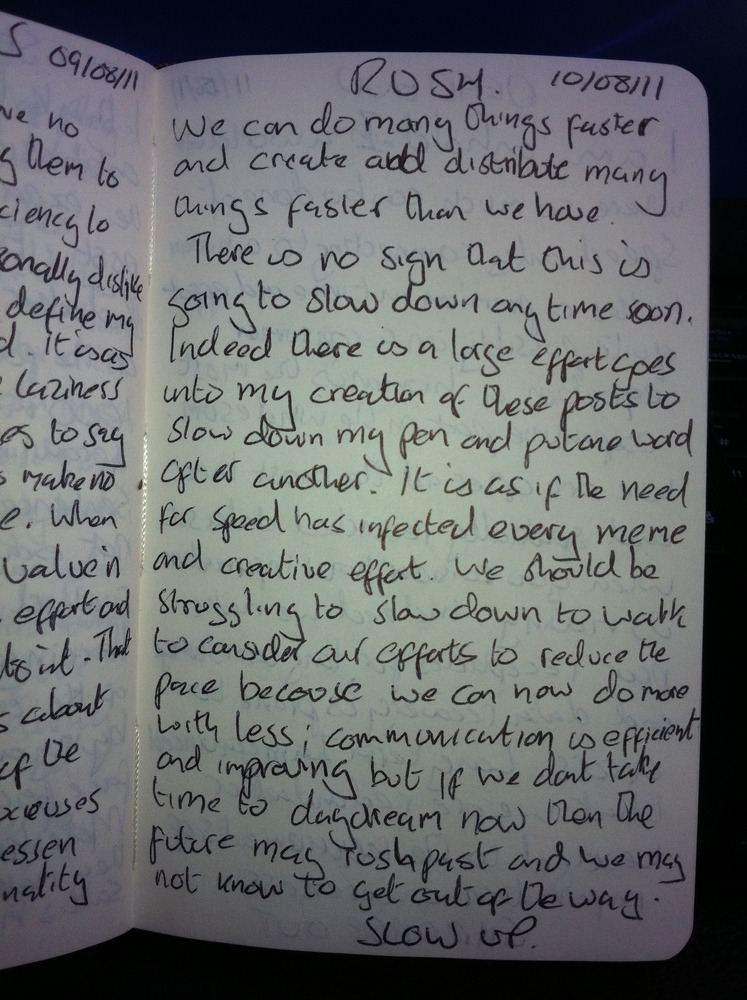 S 09/08/11
ve no
g them to
ciency to
sonally dislike
define my
d. it is as
laziness
es to say
s make no
e. When
value in
effort and
to it. That
s about
of the
xcuses
essen
nality
RUSH. 10/08/11
We can do many things faster
and create add distribute many
things faster than we have.
There is no sign that this is
going to slow down anytime soon.
Indeed there is a large effort goes
into my creation of these posts to
slow down my pen and put one word
after another. It is as if the need
for speed has infected every meme
and creative effort. We should be
struggling to slow down to walk
to consider our efforts to reduce the
pace because we can now do more
with less; communication is efficient
and improving but if we dont take
time to daydream now then the
future may rush past and we may
not know to get out of the way.
SLOW UP.